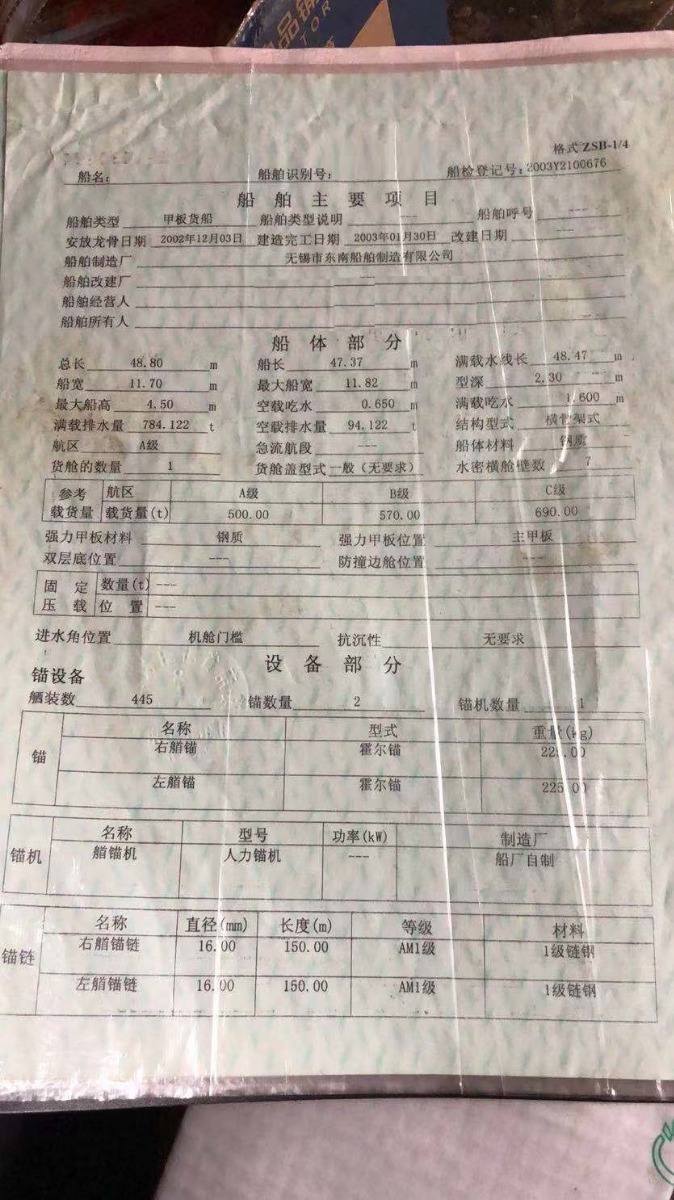 品
TOR
格式 ZSB-1/4
船名: 船舶识别号: 船检登记号: 2003Y2100676
船舶主要项目
船舶类型 甲板货船 船舶类型说明 --- 船舶呼号 ---
安放龙骨日期 2002年12月03日 建造完工日期 2003年01月30日 改建日期 ---
船舶制造厂 无锡市东南船舶制造有限公司
船舶改建厂 ---
船舶经营人
船舶所有人
船体部分
总长 48.80 m 船长 47.37 m 满载水线长 48.47 m
船宽 11.70 m 最大船宽 11.82 m 型深 2.30 m
最大船高 4.50 m 空载吃水 0.650 m 满载吃水 1.600 m
满载排水量 784.122 t 空载排水量 94.122 t 结构型式 横骨架式
航区 A级 急流航段 --- 船体材料 钢质
货舱的数量 1 货舱盖型式 一般（无要求） 水密横舱壁数 7
参考 航区 A级 B级 C级
载货量 载货量(t) 500.00 570.00 690.00
强力甲板材料 钢质 强力甲板位置 主甲板
双层底位置 --- 防撞边舱位置 ---
固定 数量(t) ---
压载 位置 ---
进水角位置 机舱门槛 抗沉性 无要求
设备部分
锚设备
舾装数 445 锚数量 2 锚机数量 1
名称 型式 重量(kg)
锚 右艏锚 霍尔锚 225.00
左艏锚 霍尔锚 225.00
名称 型号 功率(kW) 制造厂
锚机 艏锚机 人力锚机 --- 船厂自制
名称 直径(mm) 长度(m) 等级 材料
锚链 右艏锚链 16.00 150.00 AM1级 1级链钢
左艏锚链 16.00 150.00 AM1级 1级链钢